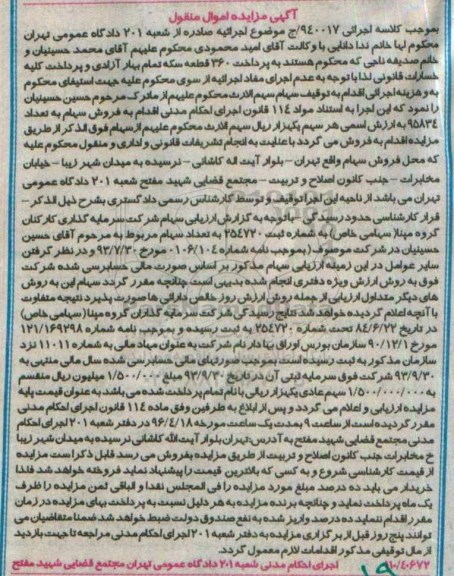 آگهی مزایده اموال منقول
بموجب کلاسه اجرائی ۹۴۰۰۱۷/ج موضوع اجرائیه صادره از شعبه ۲۰۱ دادگاه عمومی تهران
محکوم لها خانم ندا دانایی با وکالت آقای امید محمودی محکوم علیهم آقای محمد حسینیان و
خانم صدیقه ناجی که محکوم هستند به پرداخت ۳۶۰ قطعه سکه تمام بهار آزادی و پرداخت کلیه
خسارات قانونی لذا با توجه به عدم اجرای مفاد اجرائیه از سوی محکوم علیه جهت استیفای محکوم
به و هزینه اجرائی اقدام به توقیف سهام سهم الارث محکوم علیهم از مادرک مرحوم حسین حسینیان
را نمود که این اجرا به استناد مواد ۱۱۴ قانون اجرای احکام مدنی اقدام به فروش سهام به تعداد
۹۵۸۳۴ به ارزش اسمی هر سهم یکهزار ریال سهم الارث محکوم علیهم از سهام فوق الذکر از طریق
مزایده اقدام به فروش می گردد با عنایت به انجام تشریفات قانونی و اداری و منقول محکوم علیه
که محل فروش سهام واقع تهران – بلوار آیت اله کاشانی – نرسیده به میدان شهر زیبا – خیابان
مخابرات – جنب کانون اصلاح و تربیت – مجتمع قضایی شهید مفتح شعبه ۲۰۱ دادگاه عمومی
تهران می باشد از ناحیه این اجرا توقیف و توسط کارشناس رسمی دادگستری بشرح ذیل الذکر –
قرار کارشناسی حدود رسیدگی – با توجه به گزارش ارزیابی سهام شرکت سرمایه گذاری کارکنان
گروه مپنا( سهامی خاص) به شماره ثبت ۲۵۴۷۲۰ به تعداد سهام مربوط به مرحوم آقای حسین
حسینیان در شرکت موصوف (بموجب نامه شماره ۰۱۰۶/۱۰۴ مورخ ۹۳/۷/۳۰ و در نظر گرفتن
سایر عوامل در این زمینه ارزیابی سهام مذکور بر اساس صورت مالی حسابرسی شده شرکت
فوق به روش ارزش ویژه دفتری انجام شده بدیهی است چنانچه مقرر گردد سهام این به روش
های دیگر متداول ارزیابی از جمله روش ارزش روز خالص دارائی ها صورت پذیرد نتیجه متفاوت
با آنچه اعلام گردیده خواهد شد نتایج رسیدگی شرکت سرمایه گذاران گروه مپنا (سهامی خاص)
در تاریخ ۸۴/۶/۲۲ تحت شماره ۲۵۴۷۲۰ به ثبت رسیده و بموجب نامه شماره ۱۲۱/۱۶۹۲۹۸
مورخ ۹۰/۱۲/۱ سازمان بورس اوراق بهادار نام شرکت به عنوان میاد مالی به شماره ۱۱۰۱۱ نزد
سازمان مذکور به ثبت رسیده است بموجب صورتهای مالی حسابرسی شده سال مالی منتهی به
۹۳/۹/۳۰ شرکت فوق سرمایه ثبتی آن در تاریخ ۹۳/۹/۳۰ مبلغ ۱/۵۰۰/۰۰۰ میلیون ریال منقسم
به ۱/۵۰۰/۰۰۰/۰۰۰ سهم عادی یکهزار ریالی با نام تمام پرداخت شده می باشد به عنوان قیمت پایه
مزایده ارزیابی و اعلام می گردد و پس از ابلاغ به طرفین وفق ماده ۱۱۴ قانون اجرای احکام مدنی
مقرر گردیده است از ساعت ۹ بمدت یک ساعت مورخه ۹۶/۴/۱۸ در دفتر شعبه ۲۰۱ اجرای احکام
مدنی مجتمع قضایی شهید مفتح به آدرس: تهران بلوار آیت الله کاشانی نرسیده به میدان شهر زیبا
خ مخابرات جنب کانون اصلاح و تربیت از طریق مزایده بفروش می رسد قابل ذکر است مزایده
از قیمت کارشناسی شروع و به کسی که بالاترین قیمت را پیشنهاد نماید فروخته خواهد شد فلذا
خریدار می باید ده درصد مبلغ مورد مزایده را فی المجلس نقدا و الباقی ثمن مزایده را ظرف
یک ماه پرداخت نماید و چنانچه برنده مزایده به هر دلیل نسبت به پرداخت بهای مزایده در زمان
مقرر اقدام ننماید ده درصد واریز شده به نفع صندوق دولت ضبط خواهد شد ضمنا متقاضیان می
توانند پنج روز قبل از برگزاری مزایده به دفتر شعبه ۲۰۱ اجرای احکام مدنی مراجعه تا جهت بازدید
از مال توقیفی مذکور اقدامات لازم معمول گردد.
۹۱۰/۴۰۶۷۲ اجرای احکام مدنی شعبه ۲۰۱ دادگاه عمومی تهران مجتمع قضایی شهید مفتح